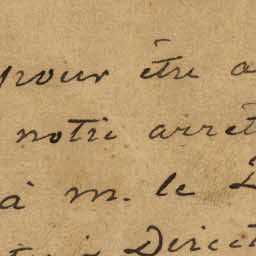 pour être a
notre arrêt
à m. le D
Direct